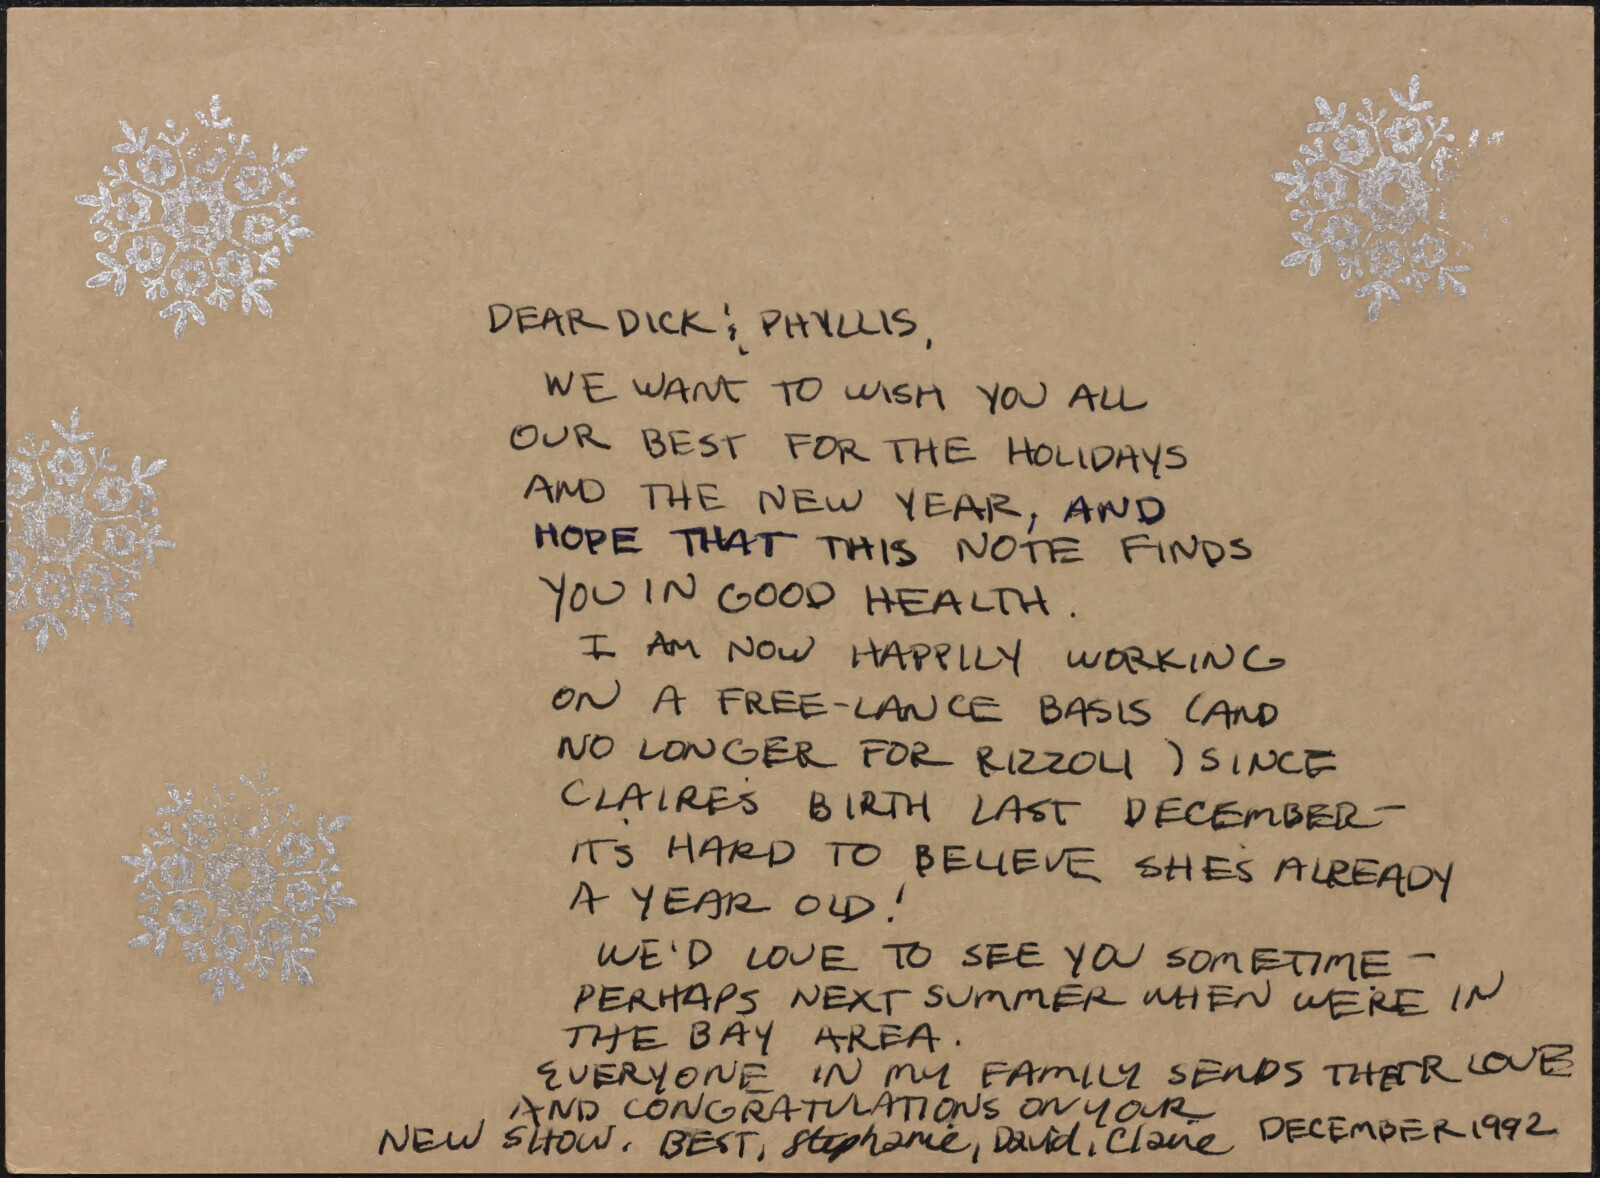 DEAR DICK & PHYLLIS,
WE WANT TO WISH YOU ALL
OUR BEST FOR THE HOLIDAYS
AND THE NEW YEAR, AND
HOPE THAT THIS NOTE FINDS
YOU IN GOOD HEALTH.
I AM NOW HAPPILY WORKING
ON A FREE-LANCE BASIS (AND
NO LONGER FOR RIZZOLI) SINCE
CLAIRE'S BIRTH LAST DECEMBER-
IT'S HARD TO BELIEVE SHE'S ALREADY
A YEAR OLD!
WE'D LOVE TO SEE YOU SOMETIME-
PERHAPS NEXT SUMMER WHEN WE'RE IN
THE BAY AREA.
EVERYONE IN MY FAMILY SENDS THEIR LOVE
AND CONGRATULATIONS ON YOUR
NEW SHOW. BEST, Stephanie, David, Claire DECEMBER 1992